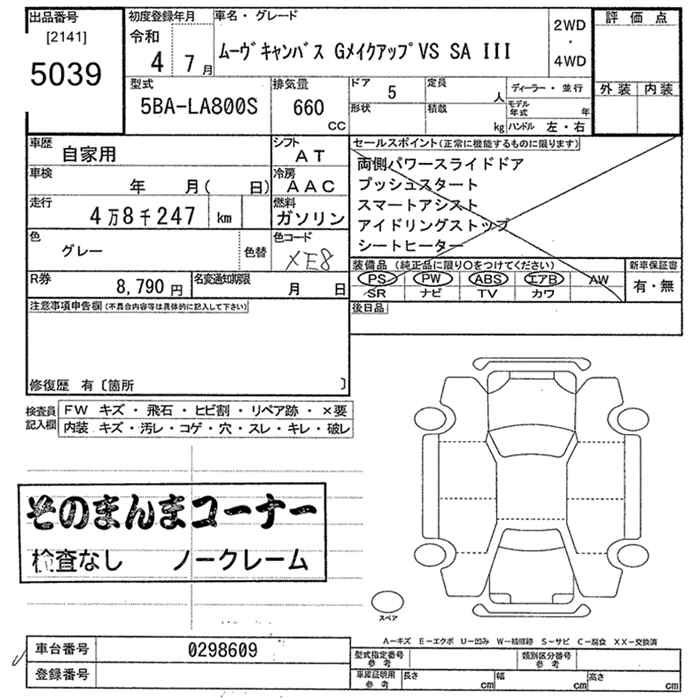 出品番号
[2141]
5039
初度登録年月
令和
4年 7月
車名・グレード
ムーヴキャンバス GメイクアップVS SA III
2WD
・
4WD
評価点
外装 内装
型式
5BA-LA800S
排気量
660
CC
ドア 5
定員 人
形状
積載 kg
ディーラー・並行
モデル年式 年
ハンドル 左・右
車歴 自家用
シフト AT
車検 年 月( 日)
冷房 AAC
走行 4万8千247 km
燃料 ガソリン
色 グレー
色替
色コード XE8
R券 8,790円
名変通知期限 月 日
セールスポイント(正常に機能するものに限ります)
両側パワースライドドア
プッシュスタート
スマートアシスト
アイドリングストップ
シートヒーター
装備品(純正品に限り○をつけてください)
PS PW ABS エアB AW
SR ナビ TV カワ
新車保証書
有・無
後日品
注意事項申告欄(不具合内容等は具体的に記入して下さい)
修復歴 有〔箇所 〕
検査員記入欄
FW キズ・飛石・ヒビ割・リペア跡・×要
内装 キズ・汚レ・コゲ・穴・スレ・キレ・破レ
そのまんまコーナー
検査なし ノークレーム
スペア
A-キズ E-エクボ U-凹み W-補修跡 S-サビ C-腐食 XX-交換済
車台番号 0298609
登録番号
型式指定番号 参考
類別区分番号 参考
車庫証明用 参考
長さ cm
幅 cm
高さ cm